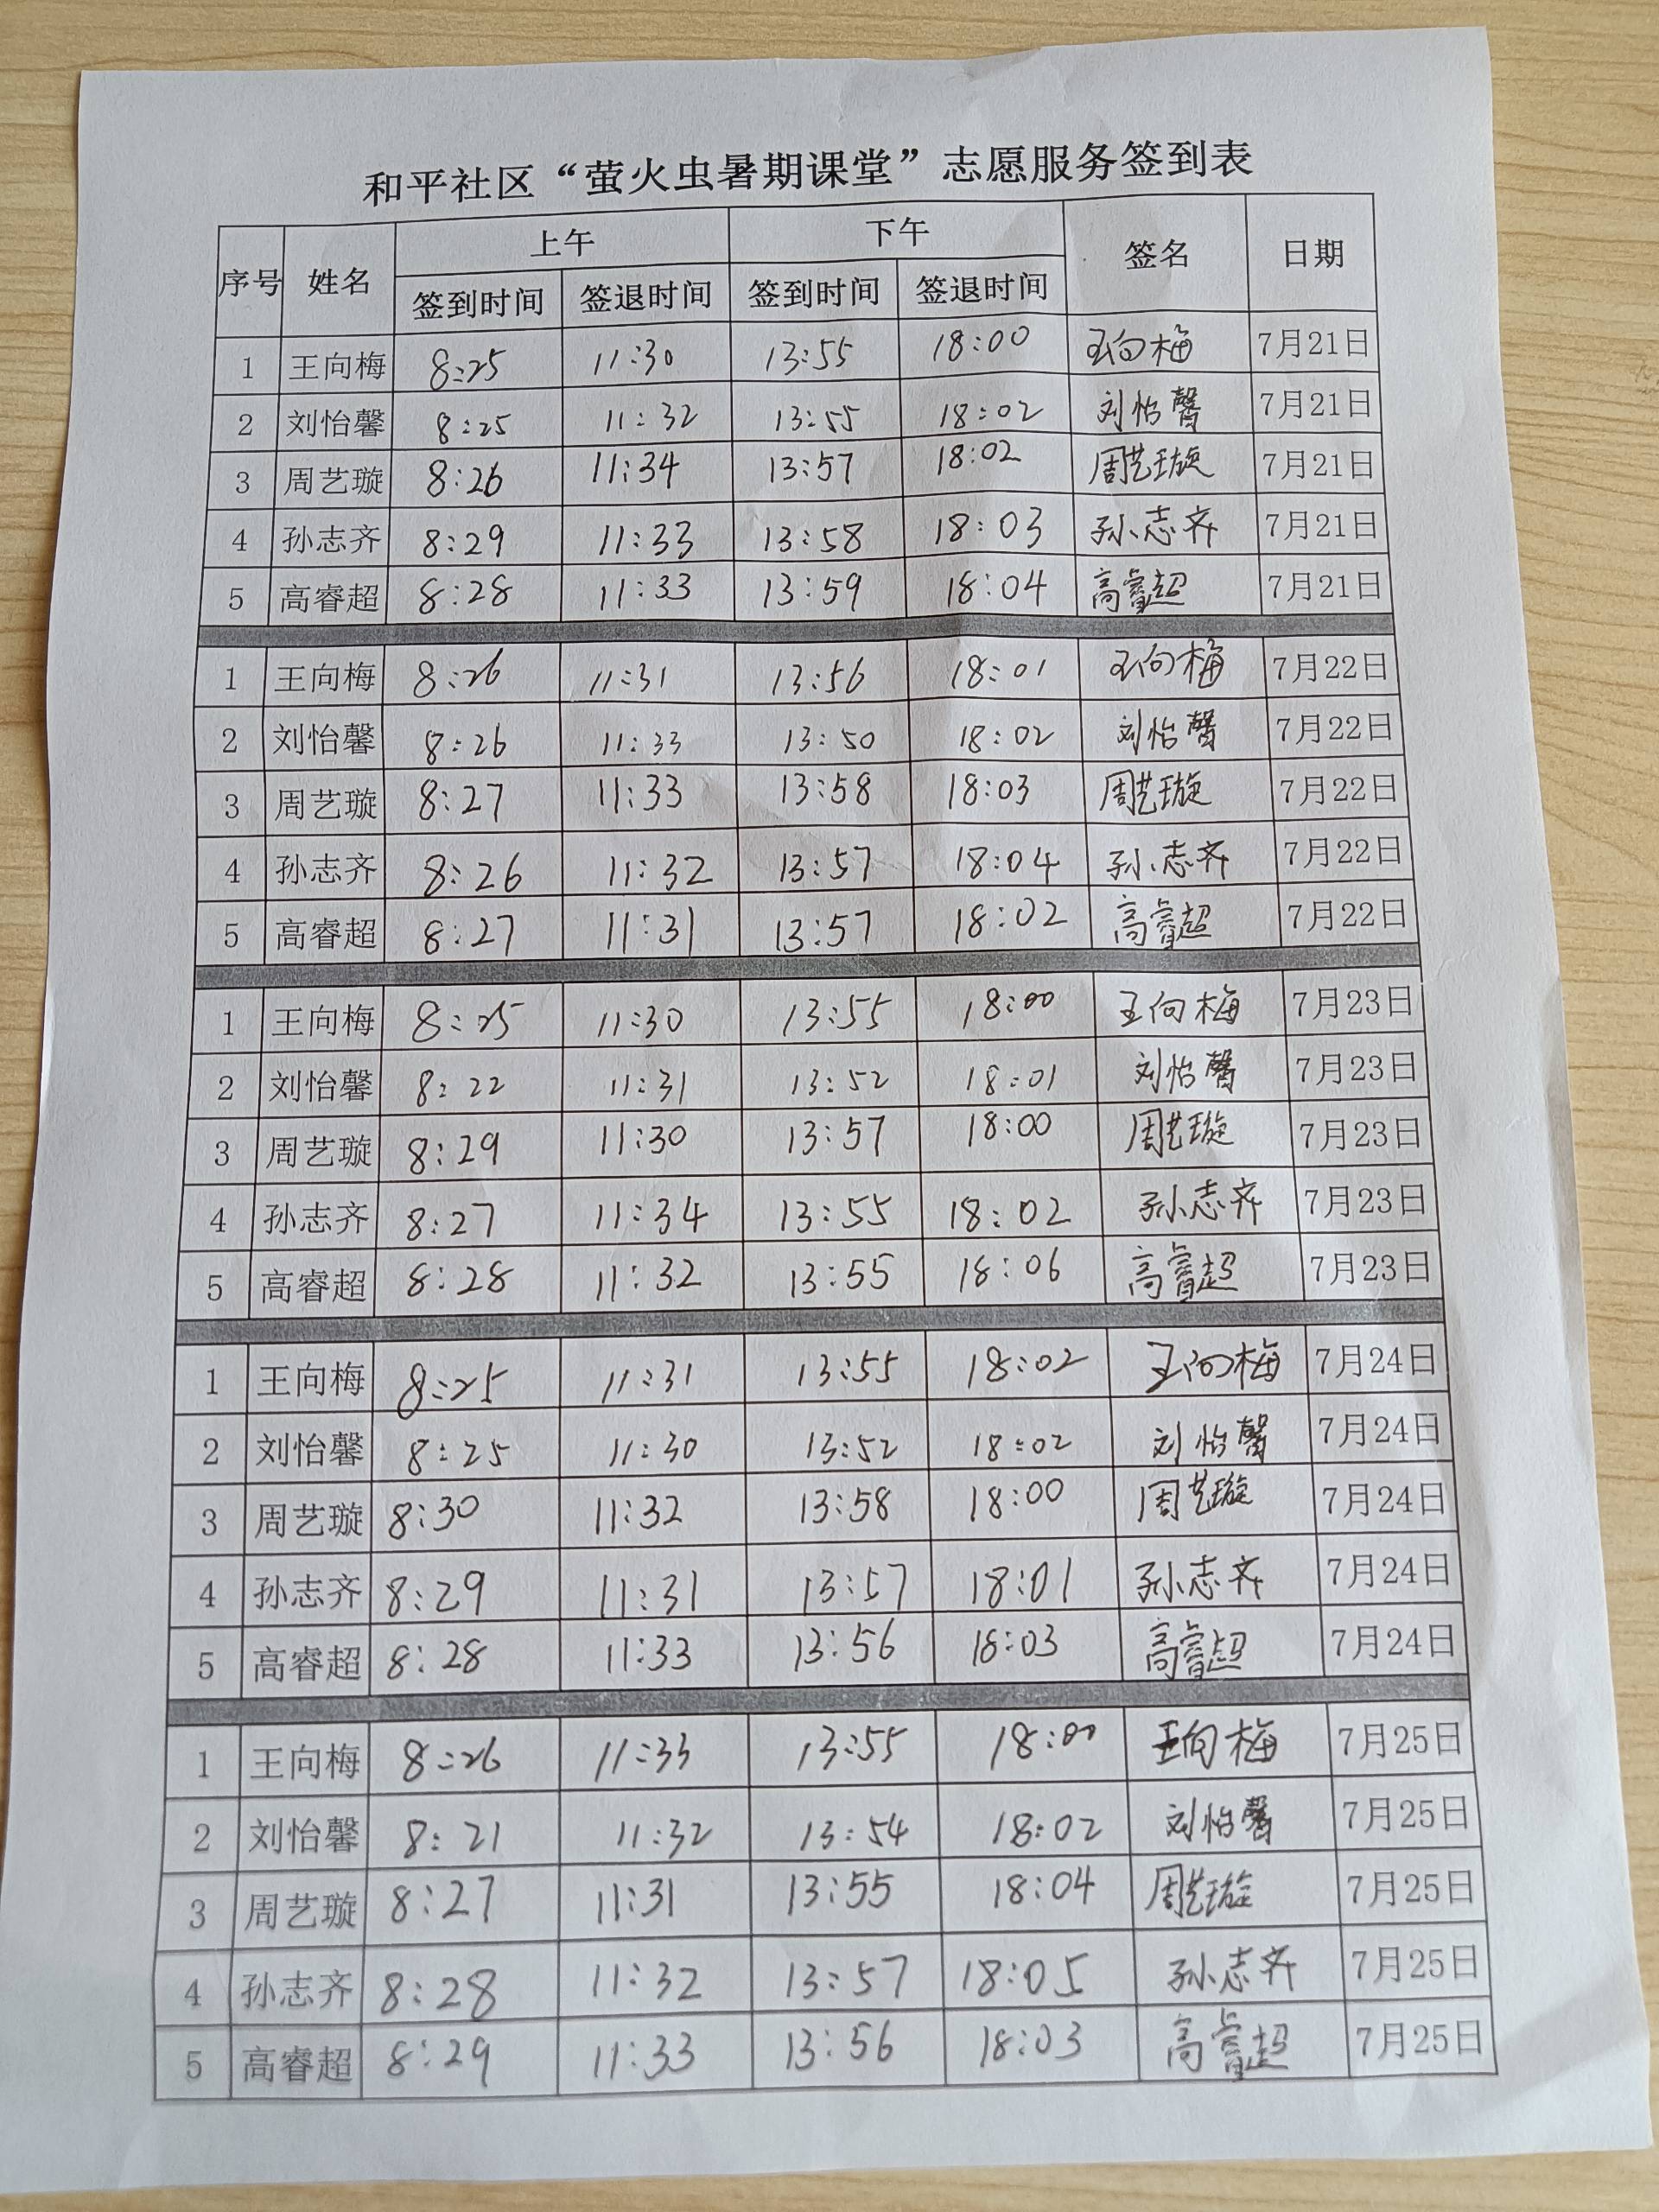 和平社区“萤火虫暑期课堂”志愿服务签到表
序号 姓名 上午 下午 签名 日期
签到时间 签退时间 签到时间 签退时间
1 王向梅 8:25 11:30 13:55 18:00 王向梅 7月21日
2 刘怡馨 8:25 11:32 13:55 18:02 刘怡馨 7月21日
3 周艺璇 8:26 11:34 13:57 18:02 周艺璇 7月21日
4 孙志齐 8:29 11:33 13:58 18:03 孙志齐 7月21日
5 高睿超 8:28 11:33 13:59 18:04 高睿超 7月21日
1 王向梅 8:26 11:31 13:56 18:01 王向梅 7月22日
2 刘怡馨 8:26 11:33 13:50 18:02 刘怡馨 7月22日
3 周艺璇 8:27 11:33 13:58 18:03 周艺璇 7月22日
4 孙志齐 8:26 11:32 13:57 18:04 孙志齐 7月22日
5 高睿超 8:27 11:31 13:57 18:02 高睿超 7月22日
1 王向梅 8:25 11:30 13:55 18:00 王向梅 7月23日
2 刘怡馨 8:22 11:31 13:52 18:01 刘怡馨 7月23日
3 周艺璇 8:29 11:30 13:57 18:00 周艺璇 7月23日
4 孙志齐 8:27 11:34 13:55 18:02 孙志齐 7月23日
5 高睿超 8:28 11:32 13:55 18:06 高睿超 7月23日
1 王向梅 8:25 11:31 13:55 18:02 王向梅 7月24日
2 刘怡馨 8:25 11:30 13:52 18:02 刘怡馨 7月24日
3 周艺璇 8:30 11:32 13:58 18:00 周艺璇 7月24日
4 孙志齐 8:29 11:31 13:57 18:01 孙志齐 7月24日
5 高睿超 8:28 11:33 13:56 18:03 高睿超 7月24日
1 王向梅 8:26 11:33 13:55 18:00 王向梅 7月25日
2 刘怡馨 8:21 11:32 13:54 18:02 刘怡馨 7月25日
3 周艺璇 8:27 11:31 13:55 18:04 周艺璇 7月25日
4 孙志齐 8:28 11:32 13:57 18:05 孙志齐 7月25日
5 高睿超 8:29 11:33 13:56 18:03 高睿超 7月25日